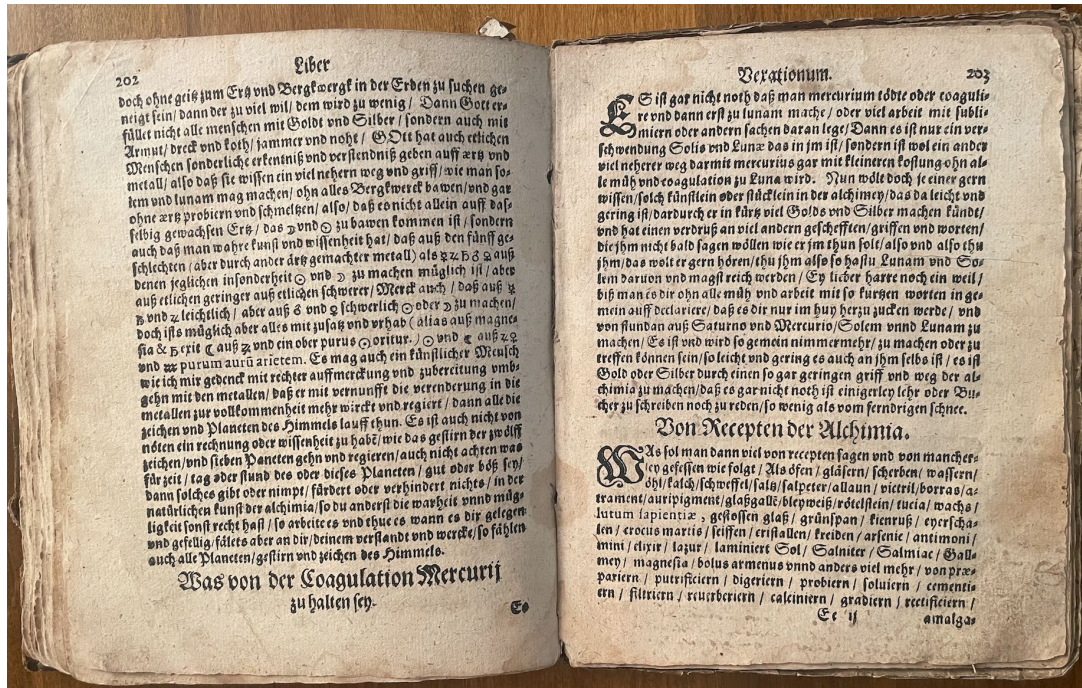 202
Liber
doch ohne geitz zum Ertz vnd Bergkwergk in der Erden zu suchen ge-
neigt sein/ dann der zu viel wil/ dem wird zu wenig/ Dann Gott er-
füllet nicht alle menschen mit Goldt vnd Silber/ sondern auch mit
Armut/ dreck vnd koth/ jammer vnd noht/ GOtt hat auch etlichen
Menschen sonderliche erkentniß vnd verstendniß geben auff ærtz vnd
metall/ also daß sie wissen ein viel nehern weg vnd griff/ wie man so-
lem vnd lunam mag machen/ ohn alles Bergkwerck bawen/ vnd gar
ohne ærtz probiern vnd schmeltzen/ also/ daß es nicht allein auff das-
selbig gewachsen Ertz/ das ☽ vnd ☉ zu bawen kommen ist/ sondern
auch daß man wahre kunst vnd wissenheit hat/ daß auß den fünff ge-
schlechten (aber durch ander ärtz gemachter metall) als ☿ ♃ ♄ ♂ ♀ auß
denen jeglichen insonderheit ☉ vnd ☽ zu machen müglich ist/ aber
auß etlichen geringer auß etlichen schwerer/ Merck auch/ daß auß ☿
♄ vnd ♃ leichtlich/ aber auß ♂ vnd ♀ schwerlich ☉ oder ☽ zu machen/
doch ists müglich aber alles mit zusatz vnd vrhab (alias auß magne-
sia & ♄ exit ☾ auß ♃ vnd ein ober purus ☉ oritur.) ☉ vnd ☾ auß ♃ ♀
vnd ♒ purum aurū arietem. Es mag auch ein künstlicher Mensch
wie ich mir gedenck mit rechter auffmerckung vnd zubereitung vmb-
gehn mit den metallen/ daß er mit vernunfft die verenderung in die
metallen zur vollkommenheit mehr wirckt vnd regiert/ dann alle die
zeichen vnd Planeten des Himmels lauff thun. Es ist auch nicht von
nöten ein rechnung oder wissenheit zu habē/ wie das gestirn der zwölff
zeichen/ vnd sieben Paneten gehn vnd regieren/ auch nicht achten was
für zeit/ tag oder stund des oder dieses Planeten/ gut oder böß sey/
dann solches gibt oder nimpt/ fürdert oder verhindert nichts/ in der
natürlichen kunst der alchimia/ so du anderst die warheit vnnd müg-
ligkeit sonst recht hast/ so arbeite es vnd thue es wann es dir gelegen
vnd gefellig/ fälets aber an dir/ deinem verstandt vnd wercke/ so fählen
auch alle Planeten/ gestirn vnd zeichen des Himmels.
Was von der Coagulation Mercurij
zu halten sey.
Es
Vexationum.
203
ES ist gar nicht noth daß man mercurium tödte oder coaguli-
re vnd dann erst zu lunam mache/ oder viel arbeit mit subli-
miern oder andern sachen daran lege/ Dann es ist nur ein ver-
schwendung Solis vnd Lunæ das in jm ist/ sondern ist wol ein ander
viel neherer weg darmit mercurius gar mit kleineren kostung ohn al-
le müh vnd coagulation zu Luna wird. Nun wölt doch je einer gern
wissen/ solch künstlein oder stücklein in der alchimey/ das da leicht vnd
gering ist/ dardurch er in kürtz viel Golds vnd Silber machen kündt/
vnd hat einen verdruß an viel andern gescheften/ griffen vnd worten/
die jhm nicht bald sagen wöllen wie er jm thun solt/ also vnd also thu
jhm/ das wolt er gern hören/ thu jhm also so hastu Lunam vnd So-
lem daruon vnd magst reich werden/ Ey lieber harre noch ein weil/
biß man es dir ohn alle müh vnd arbeit mit so kurtzen worten in ge-
mein auff declariere/ daß es dir nur im huy herzu zucken werde/ vnd
von stund an auß Saturno vnd Mercurio/ Solem vnnd Lunam zu
machen/ Es ist vnd wird so gemein nimmermehr/ zu machen oder zu
treffen können sein/ so leicht vnd gering es auch an jhm selbs ist/ es ist
Gold oder Silber durch einen so gar geringen griff vnd weg der al-
chimia zu machen/ daß es gar nicht noth ist einigerley lehr oder Bu-
cher zu schreiben noch zu reden/ so wenig als vom ferndrigen schnee.
Von Recepten der Alchimia.
WAs sol man dann viel von recepten sagen vnd von mancher-
ley gefessen wie folgt/ Als öfen/ gläsern/ scherben/ wassern/
öhl/ kalch/ schweffel/ saltz/ salpeter/ allaun/ victril/ borras/ a-
trament/ auripigment/ glaßgallē/ bleyweiß/ rötelstein/ tucia/ wachs/
lutum sapientiæ, gestossen glaß/ grünspan/ kienruß/ eyerscha-
len/ crocus martis/ seiffen/ cristallen/ kreiden/ arsenic/ antimoni/
mini/ elixir/ lazur/ laminiert Sol/ Salniter/ Salmiac/ Gall-
mey/ magnesia/ bolus armenus vnnd anders viel mehr/ von præ-
pariern/ putrificiern/ digeriern/ probiern/ soluiern/ cementi-
ern/ filtriern/ reuerberiern/ calciniern/ gradiern/ rectificiern/
Ee ij
amalga-